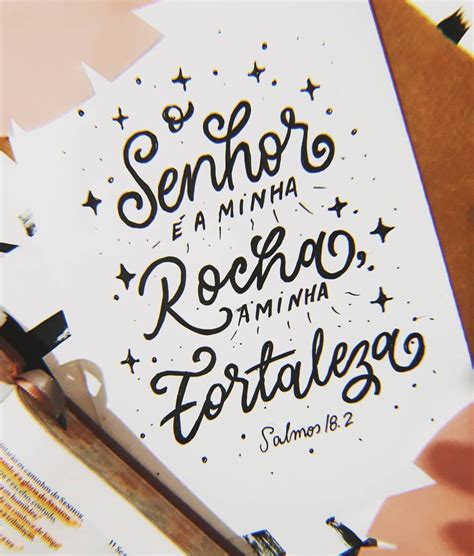 O
Senhor
É A MINHA
Rocha,
A MINHA
Fortaleza
Salmos 18.2